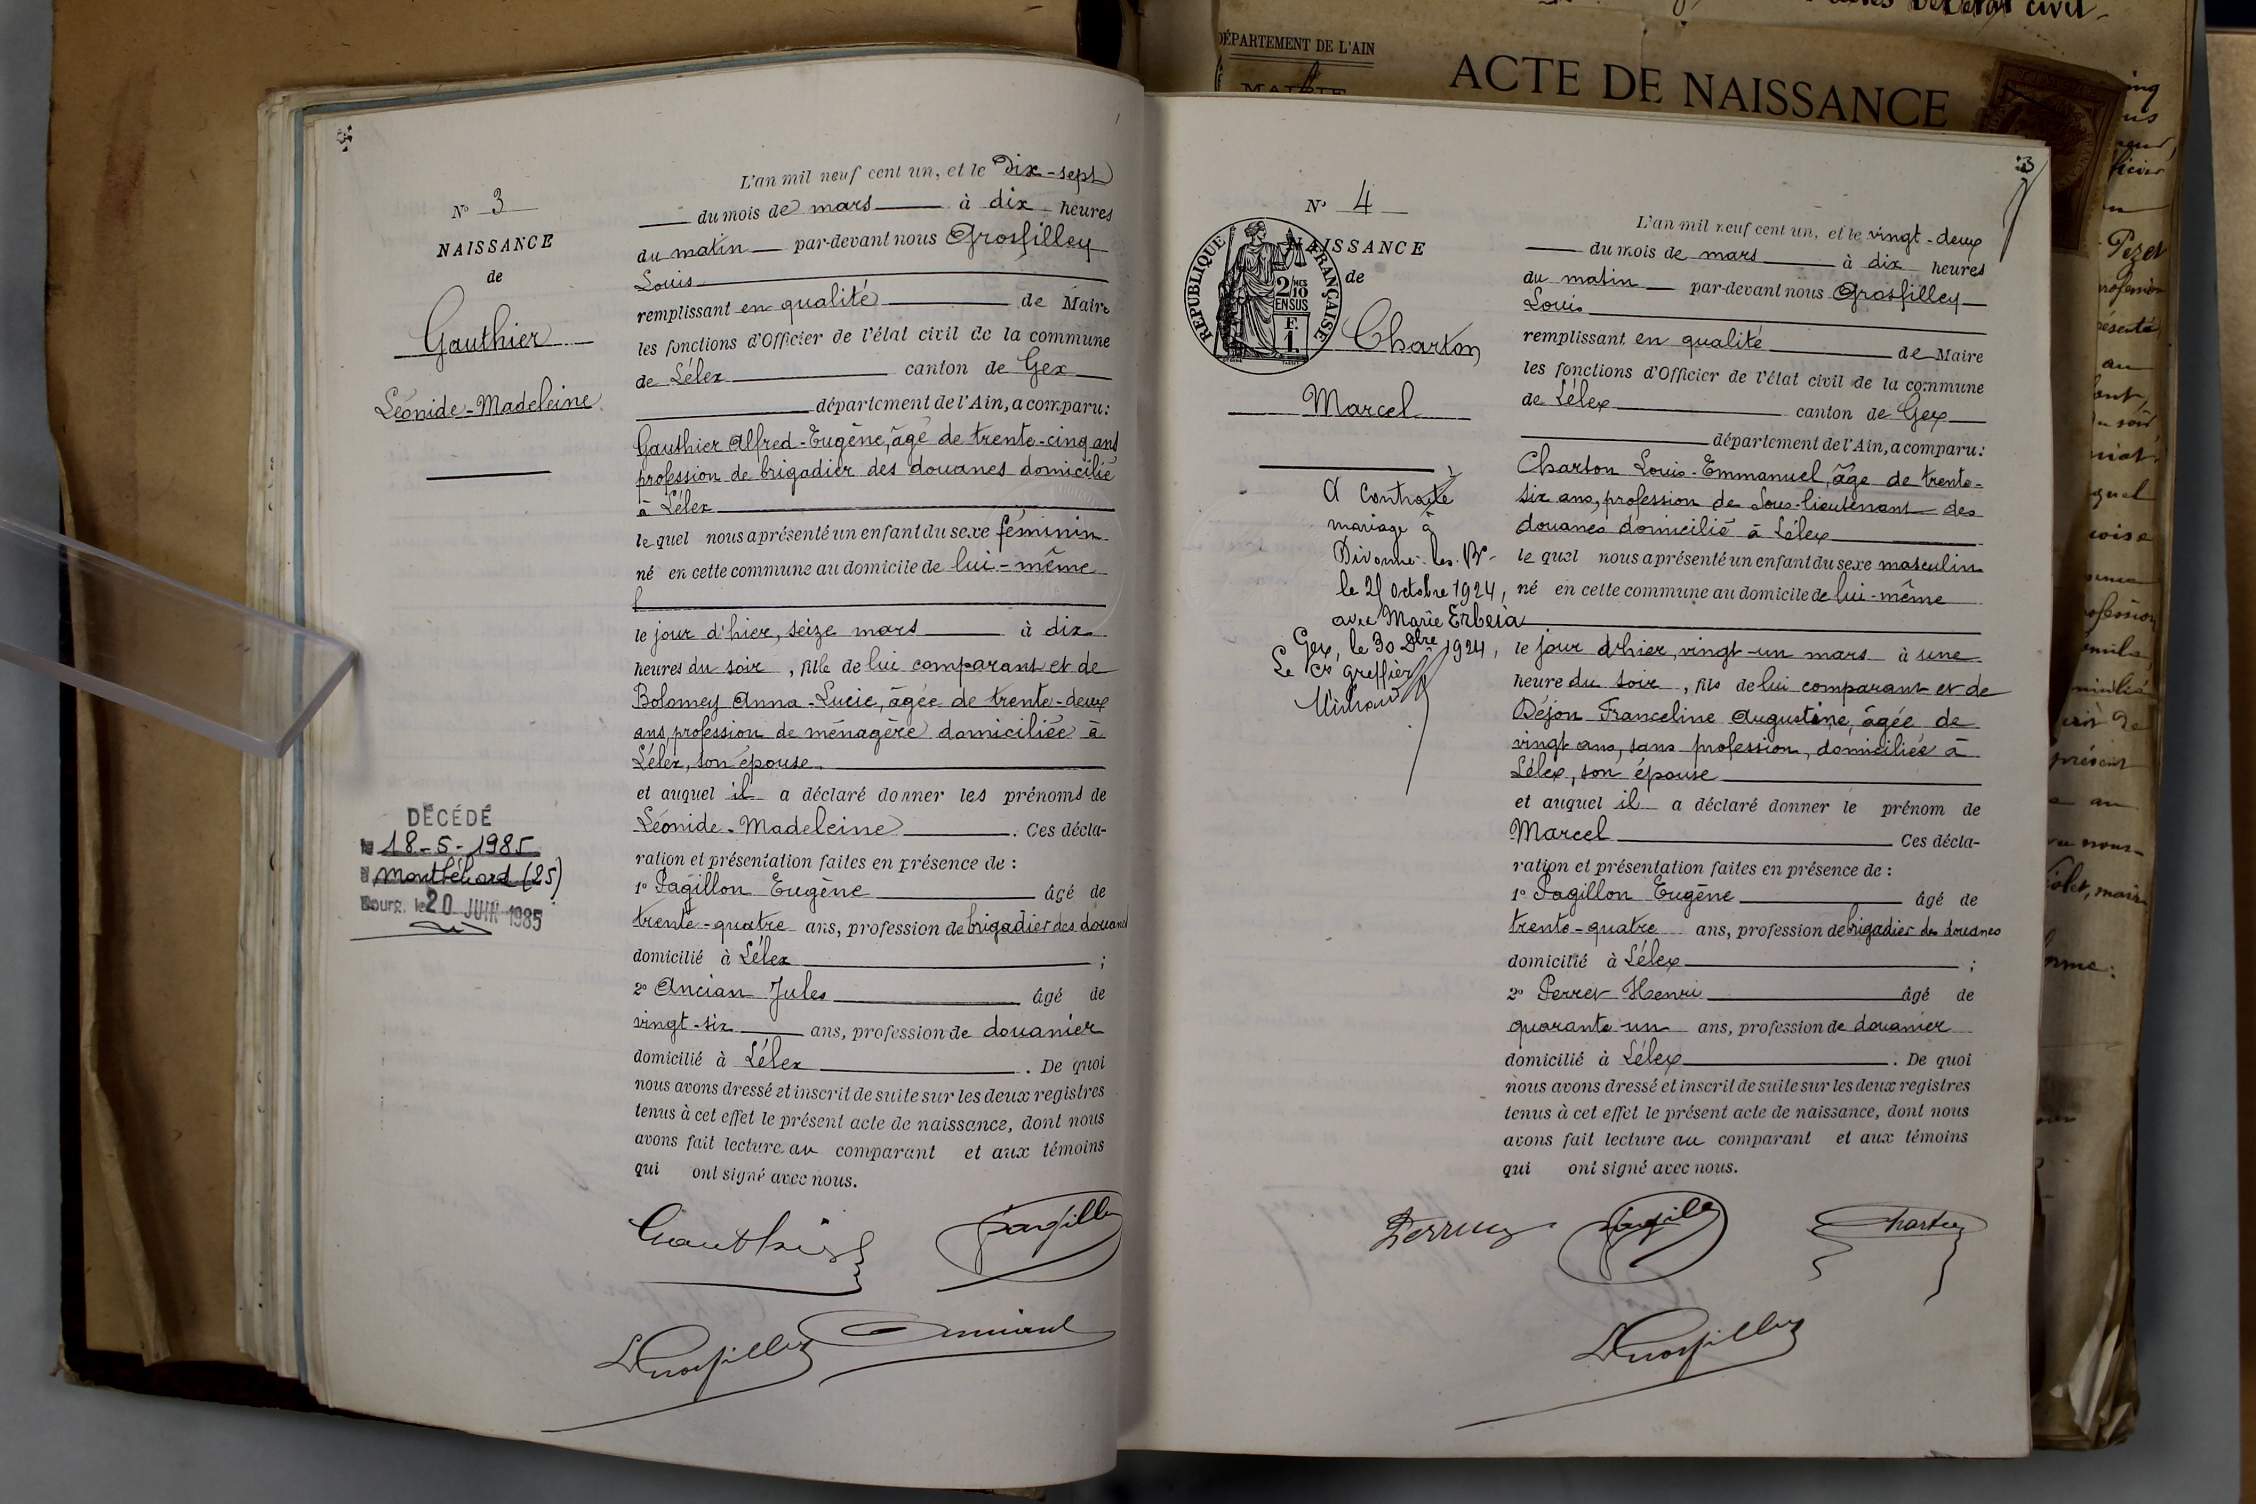 L'an mil neuf cent un, et le dix-sept
N° 3
du mois de mars à dix heures
NAISSANCE
du matin par-devant nous Grosfilley
de
Louis
remplissant en qualité de Maire
Gauthier
les fonctions d'Officier de l'état civil de la commune
de Lélex canton de Gex
Léonide-Madeleine
département de l'Ain, a comparu:
Gauthier Alfred-Eugène, âgé de trente-cinq ans
profession de brigadier des douanes domicilié
à Lélex
lequel nous a présenté un enfant du sexe féminin
né en cette commune au domicile de lui-même
le jour d'hier, seize mars à dix
heures du soir, fille de lui comparant et de
Bolomey Anna-Lucie, âgée de trente-deux
ans, profession de ménagère domiciliée à
Lélex, son épouse
et auquel il a déclaré donner les prénoms de
DÉCÉDÉ
Léonide-Madeleine. Ces décla-
le 18-5-1985
ration et présentation faites en présence de :
à Montbéliard (25)
1° Pagillon Eugène âgé de
Bourg, le 20 JUIN 1985
trente-quatre ans, profession de brigadier des douanes
domicilié à Lélex ;
2° Ancian Jules âgé de
vingt-six ans, profession de douanier
domicilié à Lélex. De quoi
nous avons dressé et inscrit de suite sur les deux registres
tenus à cet effet le présent acte de naissance, dont nous
avons fait lecture au comparant et aux témoins
qui ont signé avec nous.
Gauthier
LGrosfilley
DÉPARTEMENT DE L'AIN
MAIRIE
ACTE DE NAISSANCE
3
L'an mil neuf cent un, et le vingt-deux
N° 4
du mois de mars à dix heures
NAISSANCE
du matin par-devant nous Grosfilley
de
Louis
RÉPUBLIQUE FRANÇAISE
2/10 MES
EN SUS
F.
1.
remplissant en qualité de Maire
Charton
les fonctions d'Officier de l'état civil de la commune
de Lélex canton de Gex
Marcel
département de l'Ain, a comparu:
Charton Louis-Emmanuel, âgé de trente-
six ans, profession de Sous-lieutenant des
douanes domicilié à Lélex
lequel nous a présenté un enfant du sexe masculin
né en cette commune au domicile de lui-même
A contracté
mariage à
Divonne-les-Bs
le 21 octobre 1924,
avec Marie Erbeia
Gex, le 30 8bre 1924,
Le Cs greffier
le jour d'hier, vingt-un mars à une
heure du soir, fils de lui comparant et de
Déjon Franceline Augustine, âgée de
vingt ans, sans profession, domiciliée à
Lélex, son épouse
et auquel il a déclaré donner le prénom de
Marcel Ces décla-
ration et présentation faites en présence de :
1° Pagillon Eugène âgé de
trente-quatre ans, profession de brigadier des douanes
domicilié à Lélex ;
2° Perret Henri âgé de
quarante-un ans, profession de douanier
domicilié à Lélex. De quoi
nous avons dressé et inscrit de suite sur les deux registres
tenus à cet effet le présent acte de naissance, dont nous
avons fait lecture au comparant et aux témoins
qui ont signé avec nous.
Charton
LGrosfilley